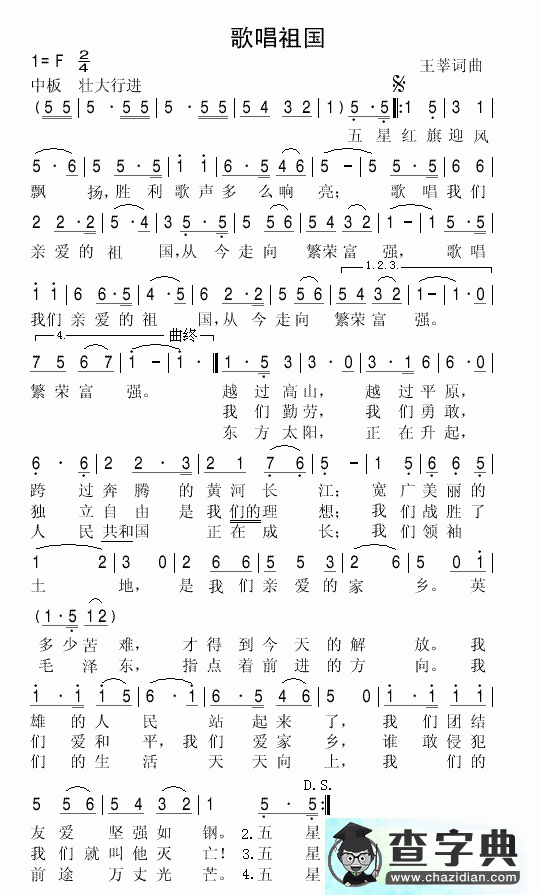 歌唱祖国
1=F 2/4
中板 壮大行进
王莘词曲
(5 5 | 5 5 5 5 | 5 5 5 5 | 5 4 3 2 | 1) 5·5 |: 1 5 | 3 1 |
五星红旗迎风
5·6 | 5 5·5 | i i | 6·5 4 6 | 5 － | 5 5·5 | 6 6 |
飘扬,胜利歌声多么响亮;歌唱我们
2 2·2 | 5·4 | 3 5·5 | 2 5 | 5 5 6 | 5 4 3 2 | 1－ | 1 5·5 |
亲爱的祖国,从今走向繁荣富强,歌唱
1.2.3.
i i | 6 6·5 | 4·5 | 6 2·2 | 5 5 6 | 5 4 3 2 | 1－ | 1·0 |
我们亲爱的祖国,从今走向繁荣富强。
4. 曲终
7 5 6 7 | i － | i · || 1·5 | 3·0 | 3·1 | 6·0 |
繁荣富强。越过高山,越过平原,
我们勤劳,我们勇敢,
东方太阳,正在升起,
6·6 | 2 2·3 | 2 1 7 6 | 5－ | 1 5 | 6 6 5 |
跨过奔腾的黄河长江;宽广美丽的
独立自由是我们的理想;我们战胜了
人民共和国正在成长;我们领袖
1 2 | 3 0 | 2 6 6 | 5 6 5 | 4 2 3 | 5 | 5 0 i |
土地,是我们亲爱的家乡。英
(1·5 1 2)
多少苦难,才得到今天的解放。我
毛泽东,指点着前进的方向。我
i·i | i·i | 6·i | 5·6 | 5 4 6 | 5 0 | i·i | i i·i |
雄的人民站起来了,我们团结
们爱和平,我们爱家乡,谁敢侵犯
们的生活天天向上,我们的
D.S.
5 5 6 | 5 4 3 2 | 1 5·5 :|
友爱坚强如钢。2.五星
我们就叫他灭亡!3.五星
前途万丈光芒。4.五星
查字典
www.chazidian.com